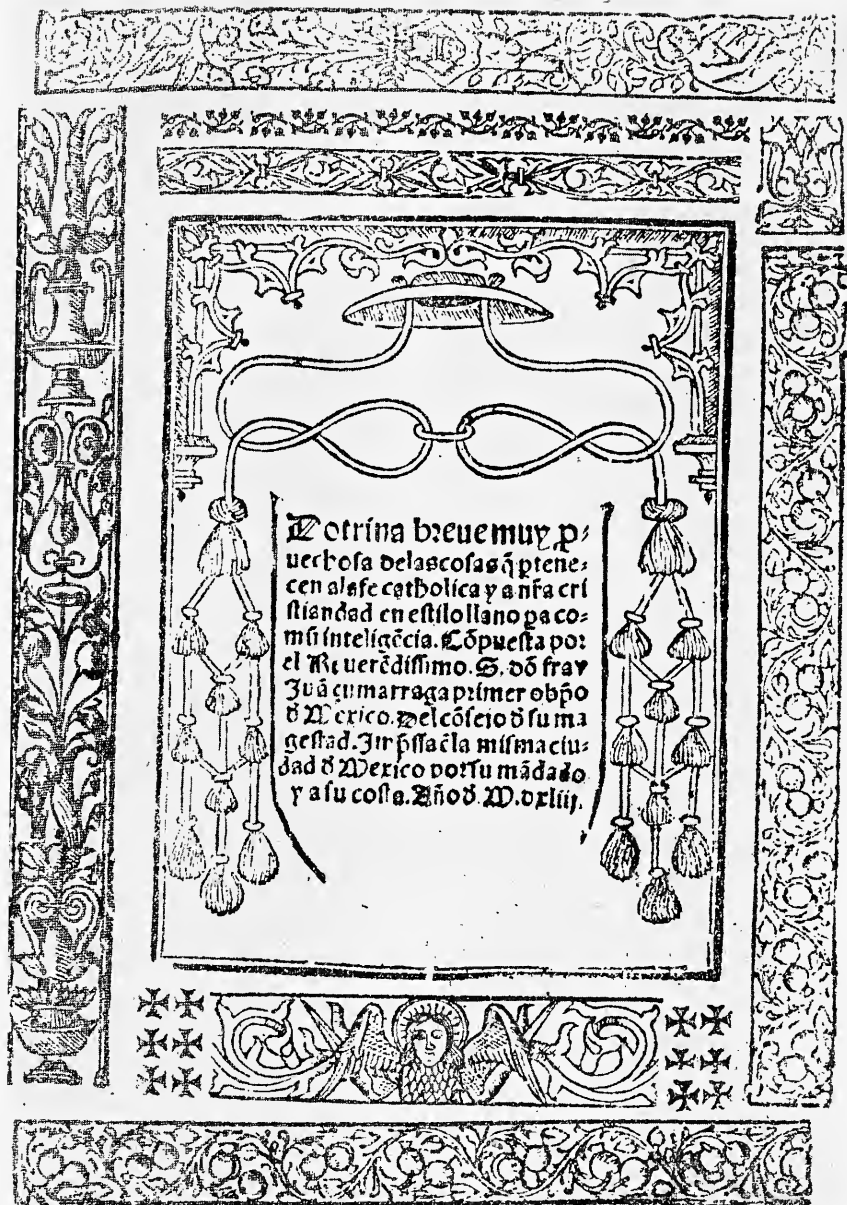 Dotrina breue muy p̱-
uechosa delas cosas q̃ ꝑtene-
cen ala fe catholica y a nr̃a cri
stiandad en estilo llano ꝑa co-
mũ inteligẽcia. Cõpuesta por
el Reuerẽdissimo. S. dõ fray
Juã çumarraga primer obp̃o
d̃ Mexico. Del cõsejo d̃ su ma
gestad. Jmp̃ssa ẽla misma ciu-
dad d̃ Mexico por su mãdado
y a su costa. Año d̃. M.dxliij.